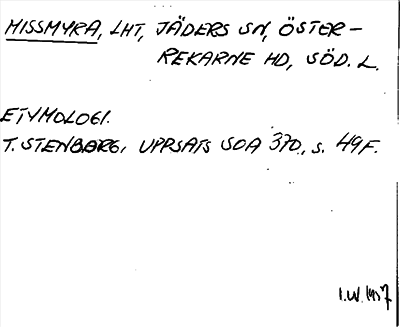 MISSMYRA, LHT, JÄDERS SN, ÖSTER-
REKARNE HD, SÖD. L.
ETYMOLOGI.
T. STENBERG, UPPSATS SOA 370, s. 49F.
I.W. 1957